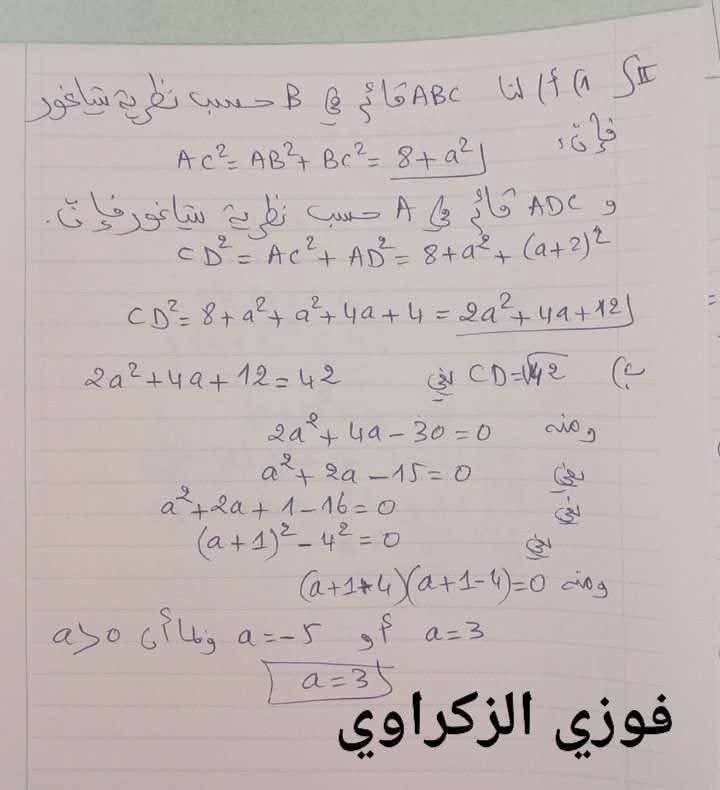 II) 1) أ) لنا ABC قائم في B حسب نظرية بيتاغور
فإن:
AC²= AB²+ BC²= 8+a²
و ADC قائم في A حسب نظرية بيتاغور فإن.
CD²= AC²+ AD²= 8+a²+(a+2)²
CD²= 8+a²+a²+4a+4 = 2a²+4a+12
ب) CD=√42 يعني 2a²+4a+12=42
ومنه 2a²+4a-30=0
يعني a²+2a-15=0
يعني a²+2a+1-16=0
يعني (a+1)²-4²=0
ومنه (a+1+4)(a+1-4)=0
a=3 أو a=-5 وبما أن a>0
a=3
فوزي الزكراوي